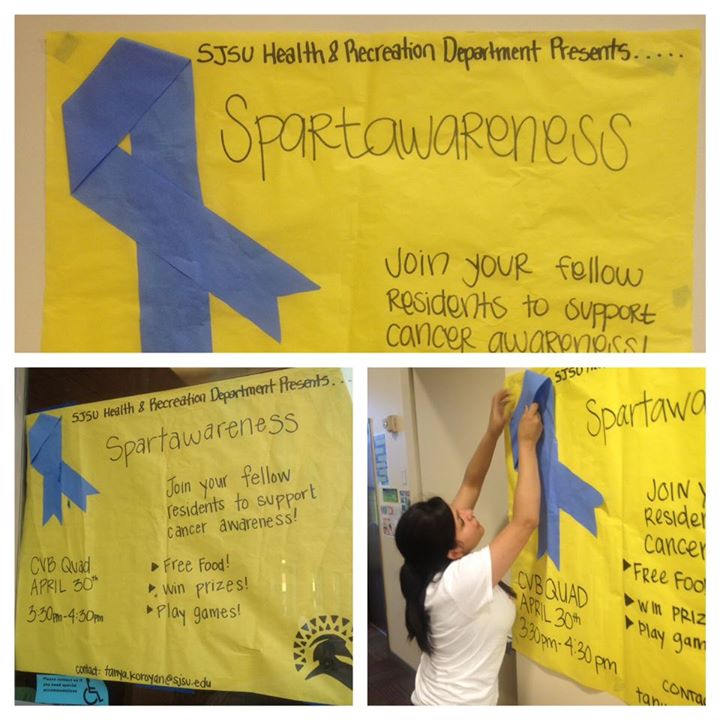 SJSU Health & Recreation Department Presents.....
Spartawareness
Join your fellow
residents to support
cancer awareness!
SJSU Health & Recreation Department Presents...
Spartawareness
Join your fellow
residents to support
cancer awareness!
CVB Quad
APRIL 30th
3:30pm-4:30pm
▸ Free Food!
▸ Win prizes!
▸ Play games!
contact: tanya.koroyan@sjsu.edu
Please contact us if
you need special
accommodations
SJSU
Spartawa
JOIN
Reside
cancer
CVB QUAD
APRIL 30th
3:30pm-4:30pm
▸ Free Foo
▸ Win PRIZ
▸ Play gam
conta
tany